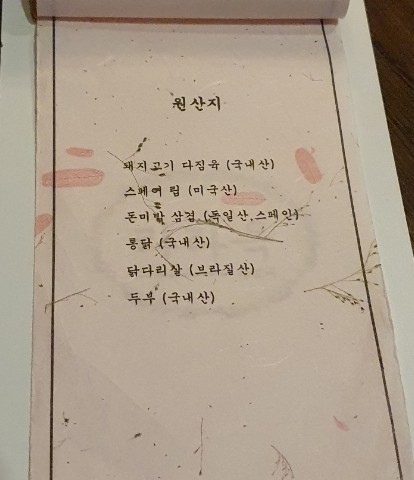 원산지
돼지고기 다짐육 (국내산)
스페어 립 (미국산)
돈미빵 삼겹 (독일산,스페인)
통닭 (국내산)
닭다리살 (브라질산)
두부 (국내산)